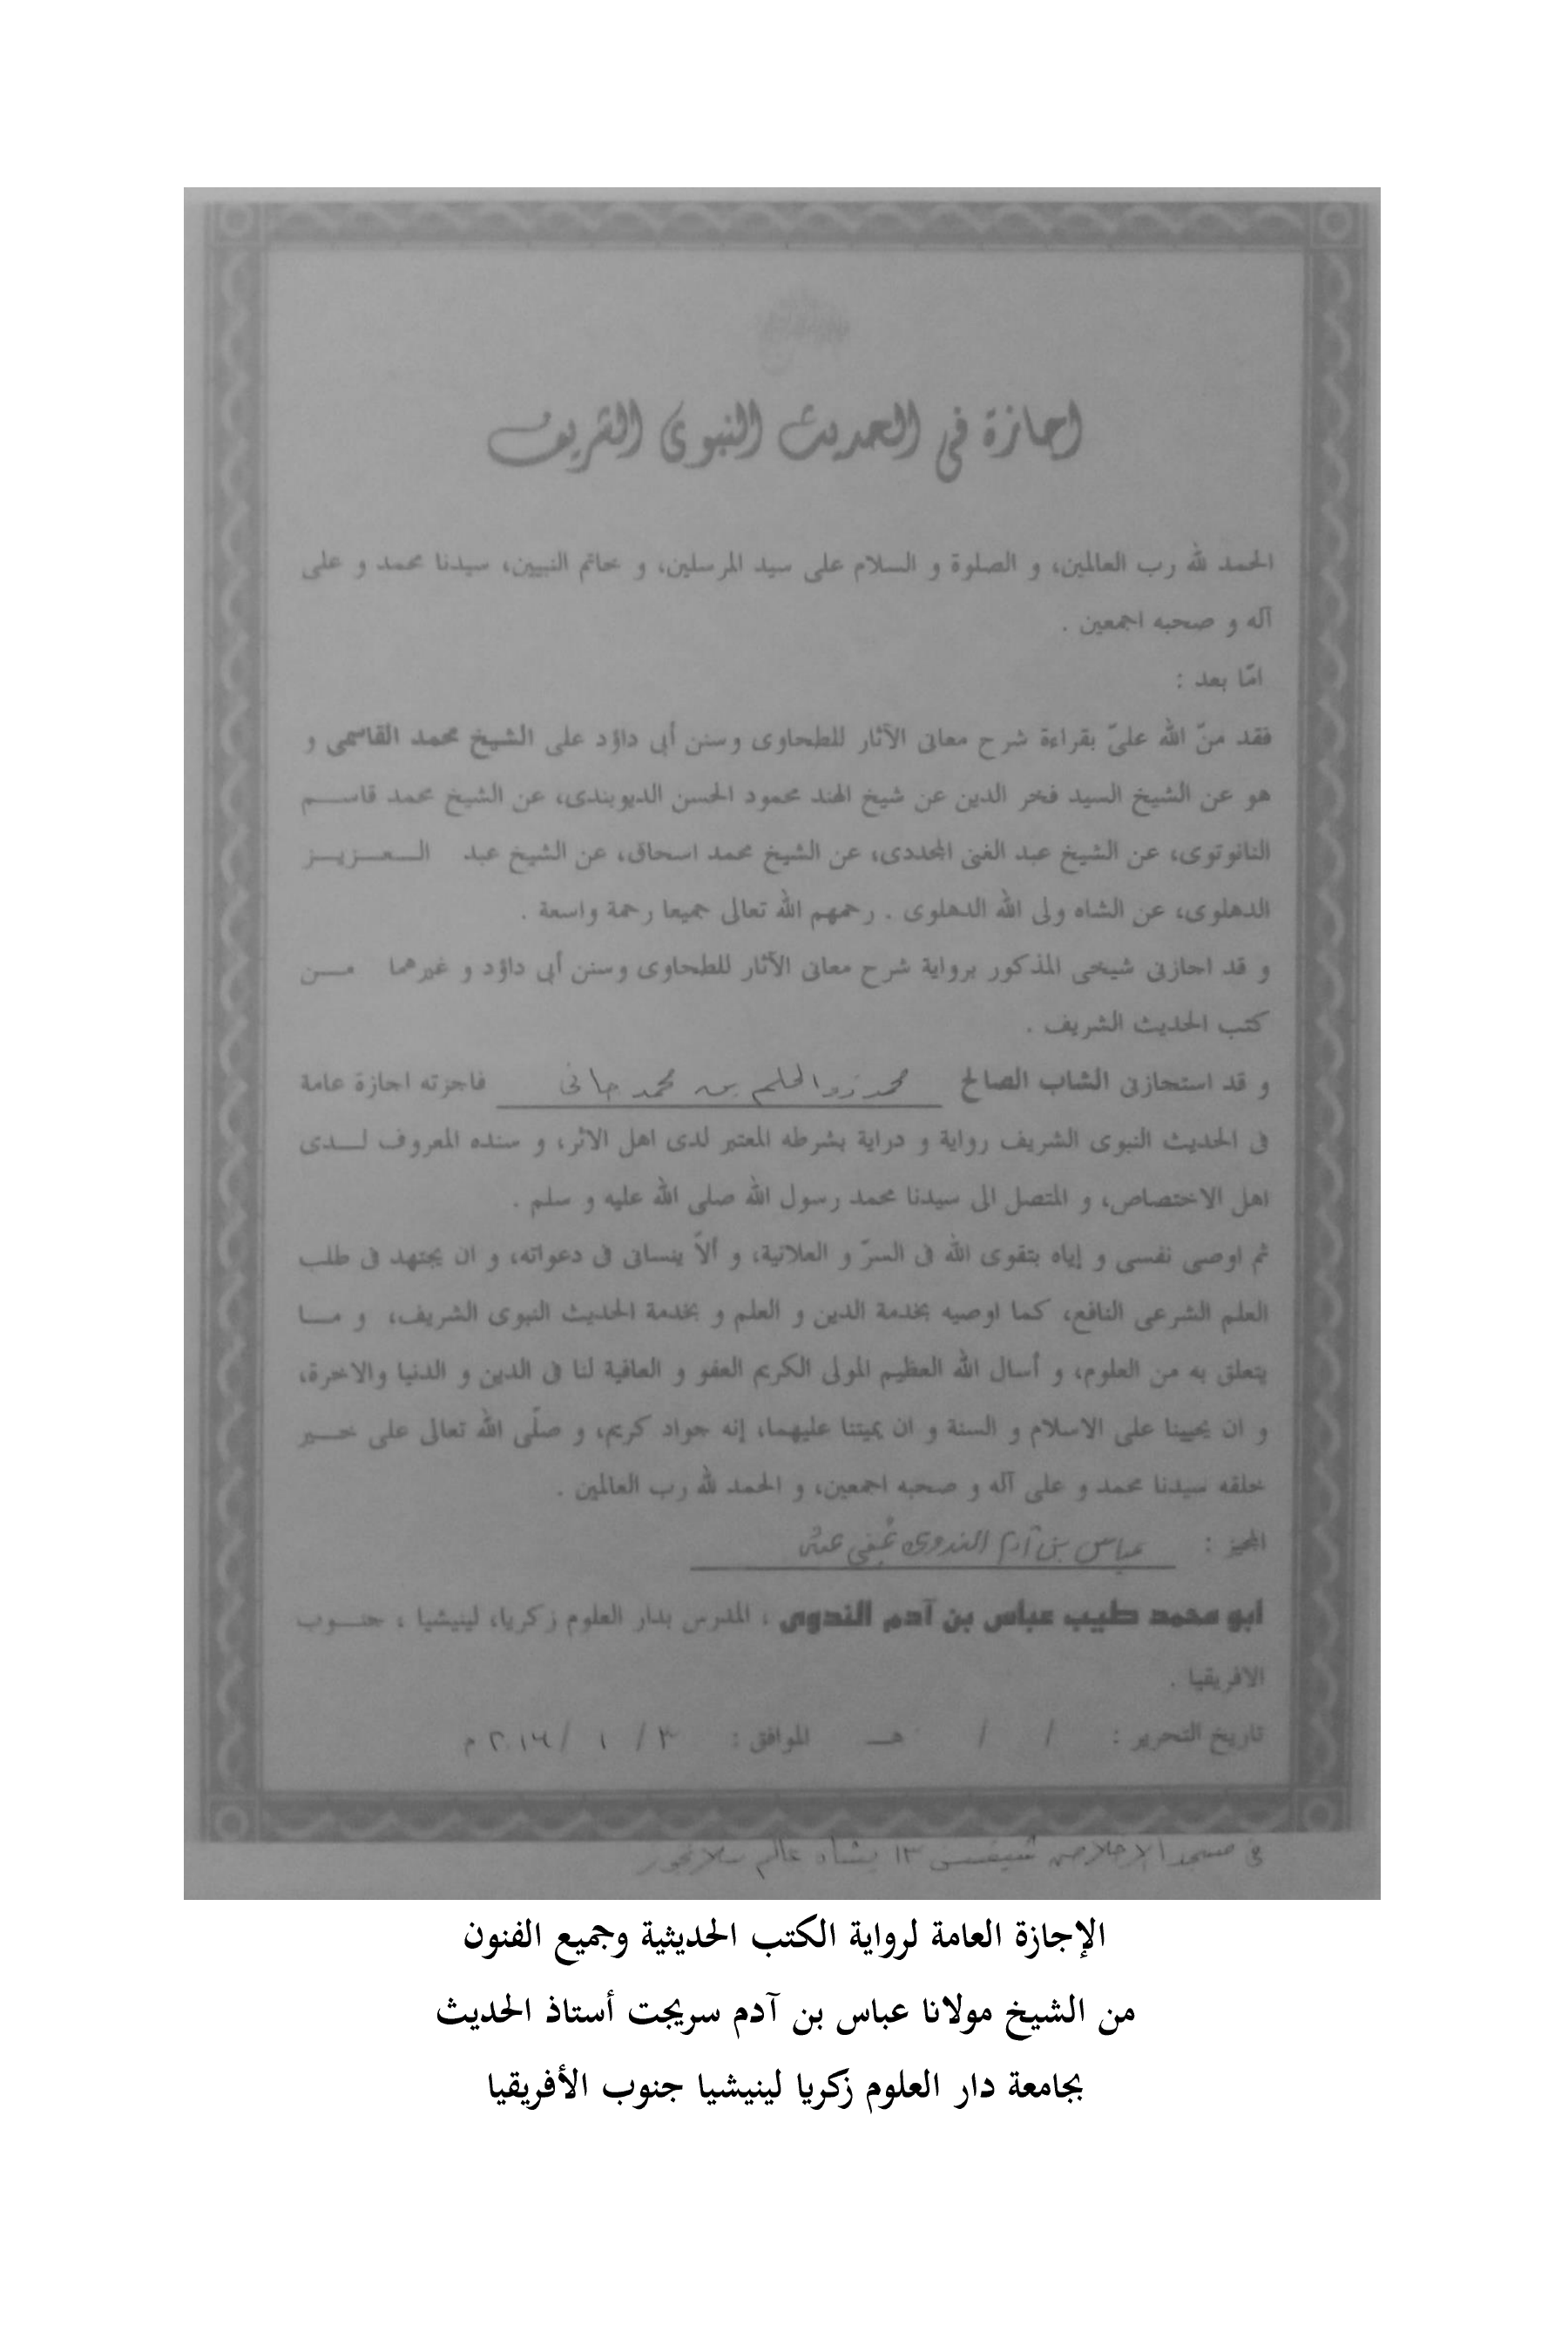 اجازة في الحديث النبوى الشريف
الحمد لله رب العالمين، و الصلوة و السلام على سيد المرسلين، و خاتم النبيين، سيدنا محمد و على
آله و صحبه اجمعين .
امّا بعد :
فقد منّ الله علىّ بقراءة شرح معانى الآثار للطحاوى وسنن أبى داؤد على الشيخ محمد القاسمى و
هو عن الشيخ السيد فخر الدين عن شيخ الهند محمود الحسن الديوبندى، عن الشيخ محمد قاســم
النانوتوى، عن الشيخ عبد الغنى المجددى، عن الشيخ محمد اسحاق، عن الشيخ عبد الــعــزيــز
الدهلوى، عن الشاه ولى الله الدهلوى . رحمهم الله تعالى جميعا رحمة واسعة .
و قد اجازنى شيخى المذكور برواية شرح معانى الآثار للطحاوى وسنن أبى داؤد و غيرهما مــن
كتب الحديث الشريف .
و قد استجازنى الشاب الصالح محمد ذو الحلم بن محمد جانى فاجزته اجازة عامة
فى الحديث النبوى الشريف رواية و دراية بشرطه المعتبر لدى اهل الاثر، و سنده المعروف لــدى
اهل الاختصاص، و المتصل الى سيدنا محمد رسول الله صلى الله عليه و سلم .
ثم اوصى نفسى و إياه بتقوى الله فى السرّ و العلانية، و ألاّ ينسانى فى دعواته، و ان يجتهد فى طلب
العلم الشرعى النافع، كما اوصيه بخدمة الدين و العلم و بخدمة الحديث النبوى الشريف، و مــا
يتعلق به من العلوم، و أسال الله العظيم المولى الكريم العفو و العافية لنا فى الدين و الدنيا والاخرة،
و ان يحيينا على الاسلام و السنة و ان يميتنا عليهما، إنه جواد كريم، و صلّى الله تعالى على خــير
خلقه سيدنا محمد و على آله و صحبه اجمعين، و الحمد لله رب العالمين .
المجيز : عباس بن آدم الندوى عُفي عنه
أبو محمد طيب عباس بن آدم الندوى ، المدرس بدار العلوم زكريا، لينيشيا ، جنــوب
الافريقيا .
تاريخ التحرير : / / هــ الموافق : ٣ / ١ / ٢٠١٦ م
فى مسجد الإخلاص سيكشن ١٣ بشاه عالم سلانجور
الإجازة العامة لرواية الكتب الحديثية وجميع الفنون
من الشيخ مولانا عباس بن آدم سريجت أستاذ الحديث
بجامعة دار العلوم زكريا لينيشيا جنوب الأفريقيا